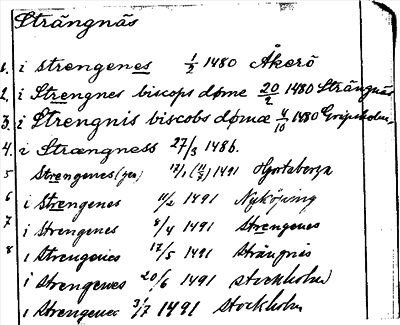 Strängnäs
1. i strengenes 1/2 1480 Åkerö
2. i Strengnes biscops döme 20/2 1480 Strängnäs
3. i Strengnis biscobs döma 4/10 1480 Gripsholm
4. i Strængness 27/3 1486.
5 Strengenes (gen) 17/1 1491 Hjortaberga
6 i Strengenes 11/2 1491 Nyköping
7 i Strengenes 8/4 1491 Strengenes
8 i Strengenes 17/5 1491 Strängnäs
i strengenes 20/6 1491 stockholm
i Strengenes 3/7 1491 Stockholm